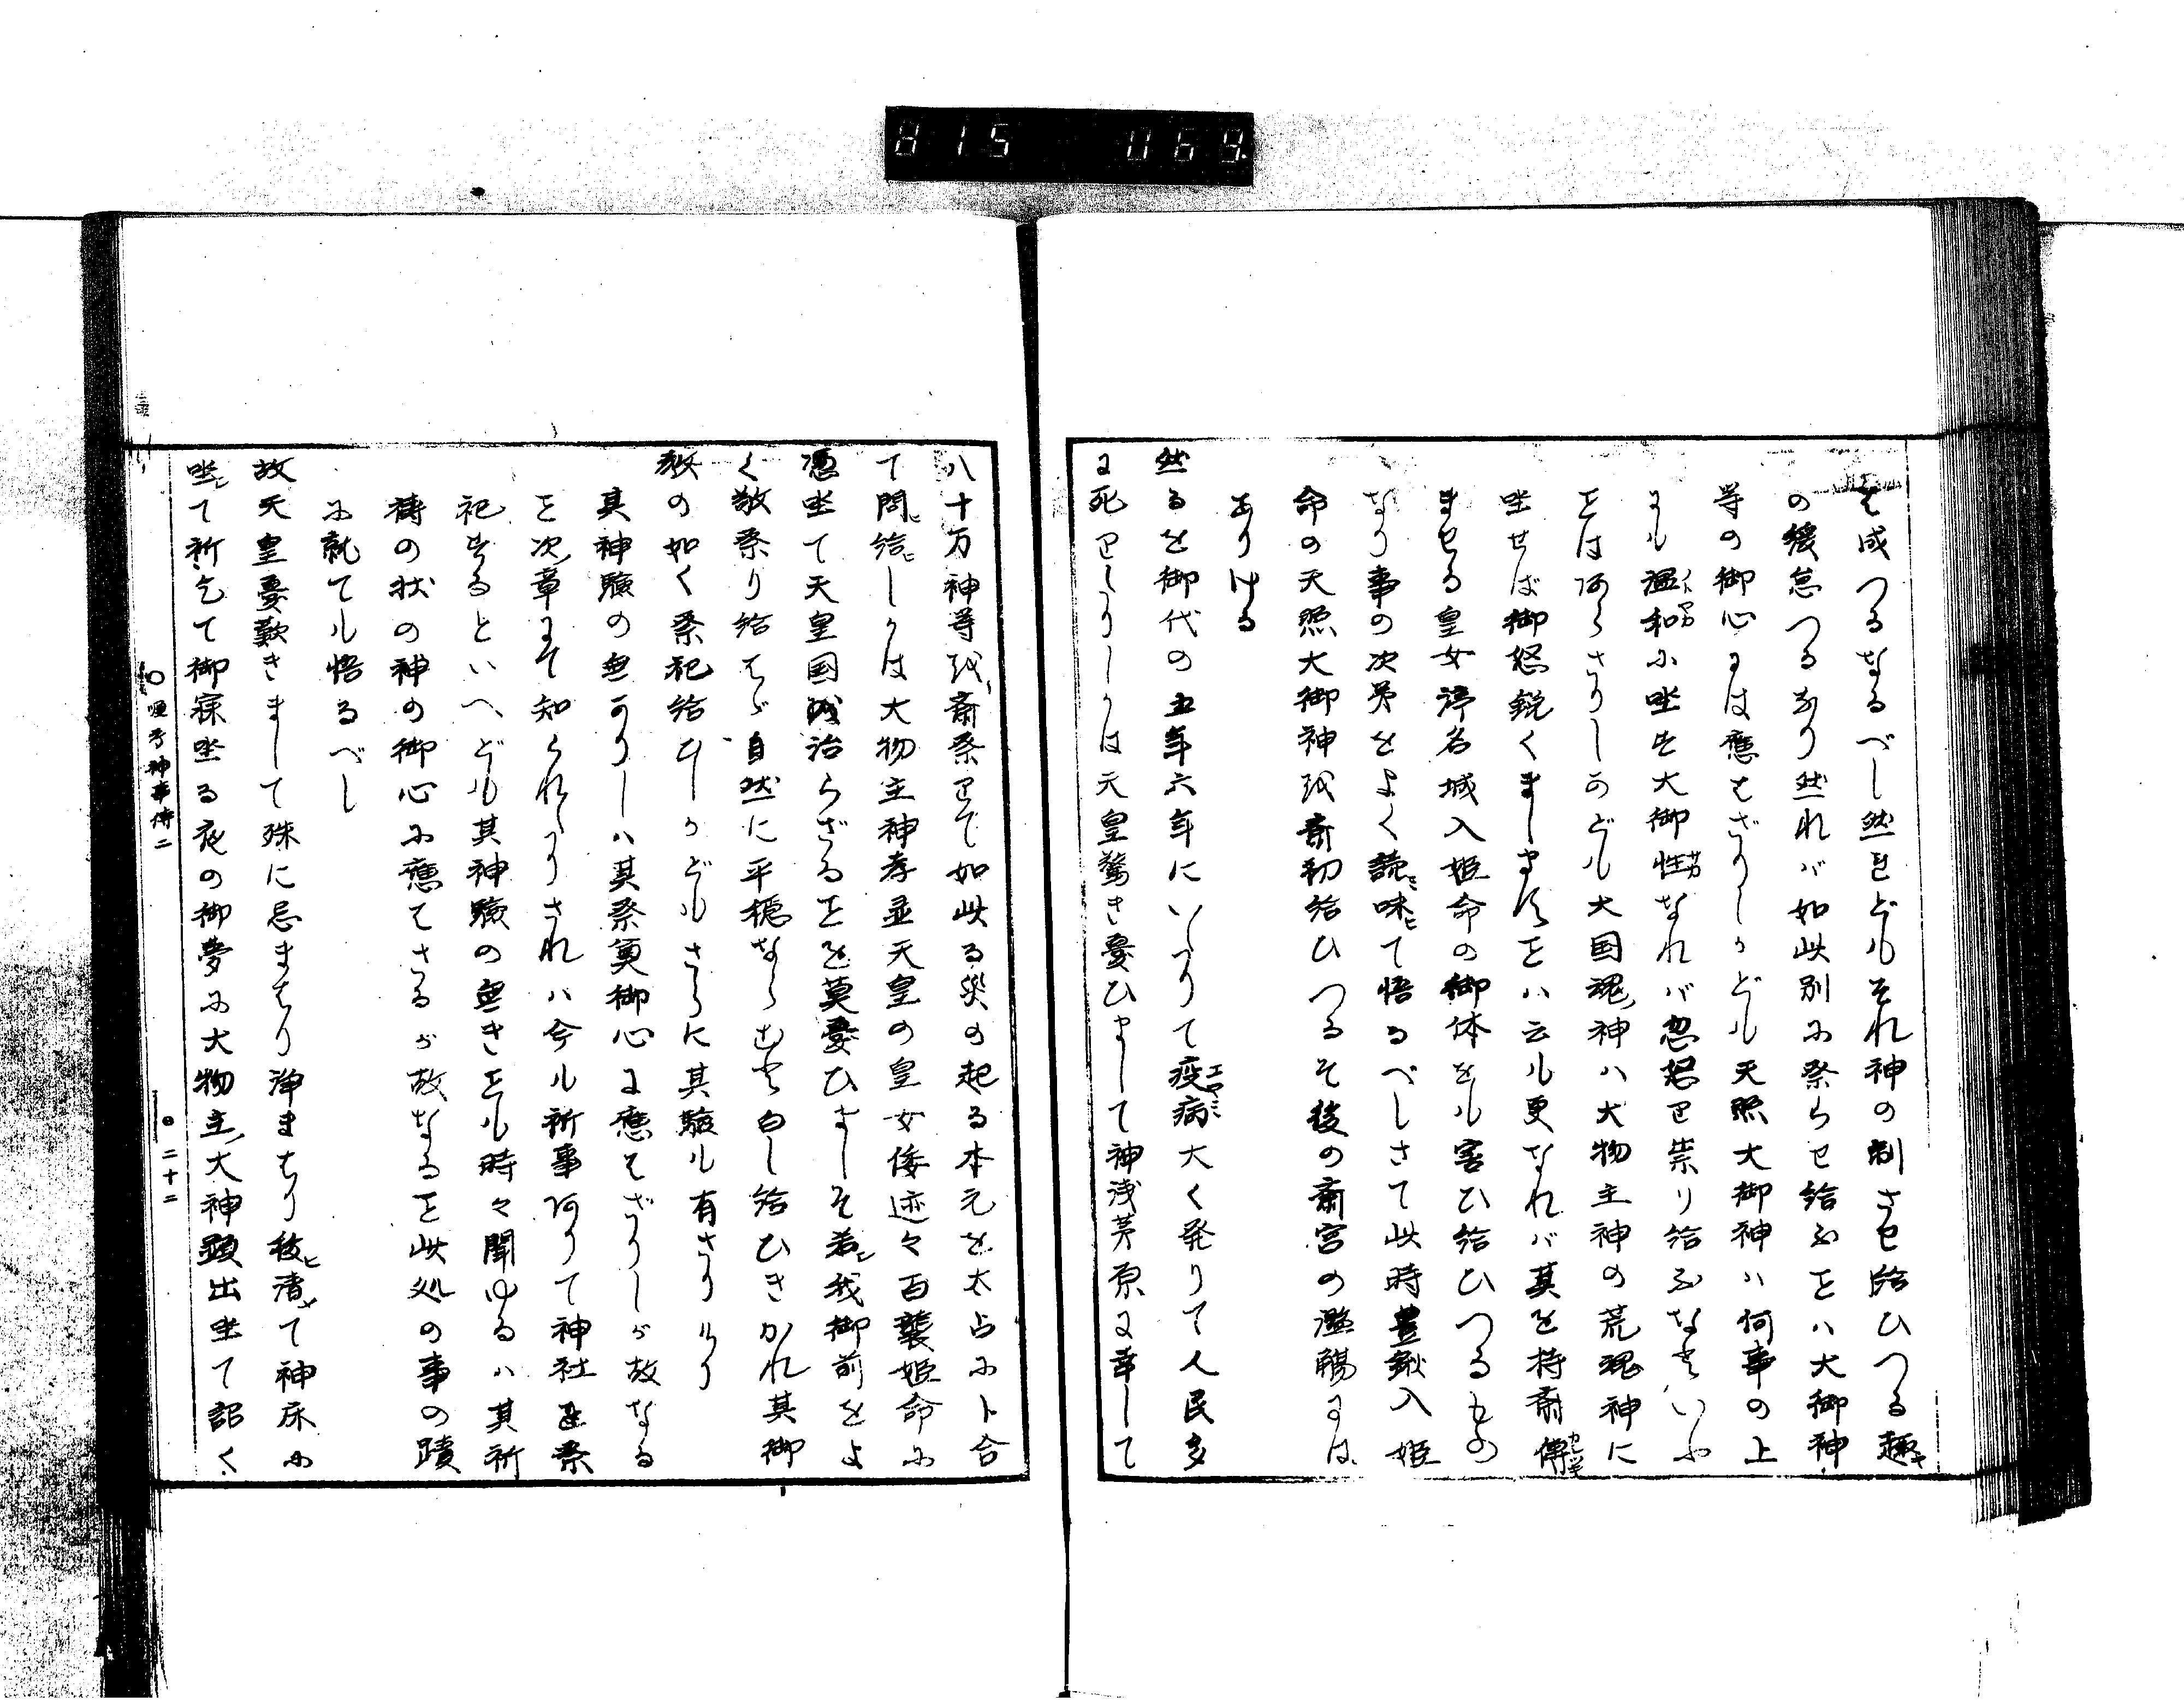 を成つるなるべし然まどもそれ神の制させ給ひつる趣
の緩怠つるなり然れバ如此別に祭らせ給ふことハ大御神
等の御心には應はざりしかども天照大御神ハ何事の上
にも温和に坐す大御性なれバ忽怒て祟り給ふなどいふ
ことはあらさりしかども大国魂神ハ大物主神の荒魂神に
坐せば御怒鋭くましますことハ云も更なれバ其を持斎傳
ませる皇女渟名城入姫命の御体をも害ひ給ひつるもの
なり事の次第をよく読味て悟るべしさて此時豊鍬入姫
命の天照大御神を斎初給ひつるそ後の斎宮の濫觴には
ありける
然るを御代の五年六年にいたりて疫病大く発りて人民多
に死てしかは天皇驚き憂ひまして神浅茅原に幸して
八十万神等を斎祭て如此る災の起る本元を太占に卜合
て問給しかは大物主神孝霊天皇の皇女倭迹々百襲姫命に
憑坐て天皇国の治らざることを莫憂ひましそ若我御前をよ
く敬祭り給はゞ自然に平穏ならむと白し給ひきかれ其御
教の如く祭祀給ひしかどもさらに其験も有さりけり
其神験の無かりしハ其祭奠御心に應はざりしが故なる
こと次章にて知られたりされハ今も祈事ありて神社を祭
祀するといへども其神験の無きことも時々聞ゆるハ其祈
祷の状の神の御心に應てさるが故なること此処の事の蹟
に就ても悟るべし
故天皇憂歎きまして殊に忌まはり浄まはり秡清て神床に
坐て祈乞て御寐坐る夜の御夢に大物主大神顕出坐て詔く
神事傳二
二十二
815 069